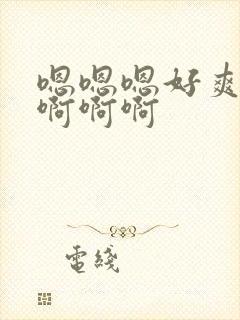 嗯嗯嗯好爽
啊啊啊
電綫